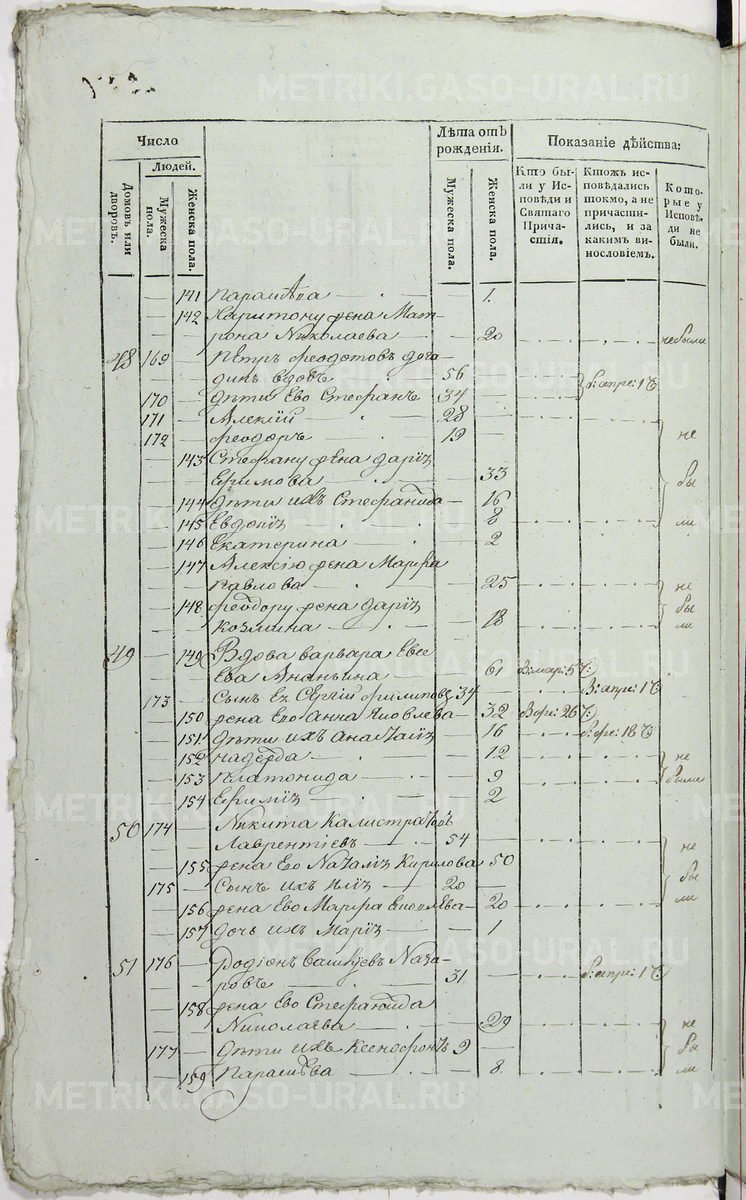 Число
Людей.
Домовъ или дворовъ.
Мужеска пола.
Женска пола.
Лѣта отъ рожденія.
Мужеска пола.
Женска пола.
Показаніе дѣйства:
Кто были у Исповѣди и Святаго Причастія.
Ктожъ исповѣдались токмо, а не причастились, и за какимъ винословіемъ.
Которые у Исповѣди не были.
141 Параскѣва 1
142 Харитону жена Мат-
рона Николаева 20 небыли
48 169 Петръ Феодотовъ
вдовъ 56
170 Дѣти Ево Стефанъ 34
171 Алексій 28
172 Феодоръ 19 не
143 Стефану жена Дарія
Ефимова 33 бы
144 Дѣти ихъ Стефанида 16
145 Евдокія 8 ли
146 Екатерина 2
147 Алексію жена Марфа
Павлова 25 не
148 Феодору жена Дарія бы
Козмина 18 ли
49 149 Вдова Варвара Евсе-
ева Ананьина 61
173 Сынъ Ея Сергій Филиповъ 34
150 жена Ево Анна Яковлева 32
151 Дѣти ихъ Анастасія 16
152 Надежда 12 не
153 Платонида 9 были
154 Ефимія 2
50 174 Никита Калистратовъ
Лаврентіевъ 54 не
155 жена Ево Наталія Кирилова 50
175 Сынъ ихъ Илія 20 бы
156 жена Ево Марфа Яковлева 20 ли
157 Дочь ихъ Марія 1
51 176 Родіонъ Савельевъ Наза-
ровъ 31
158 жена Ево Стефанида
Николаева 29 не
177 Дѣти ихъ Ксенофонтъ 9 бы
159 Параскѣва 8 ли
METRIKI.GASO-URAL.RU